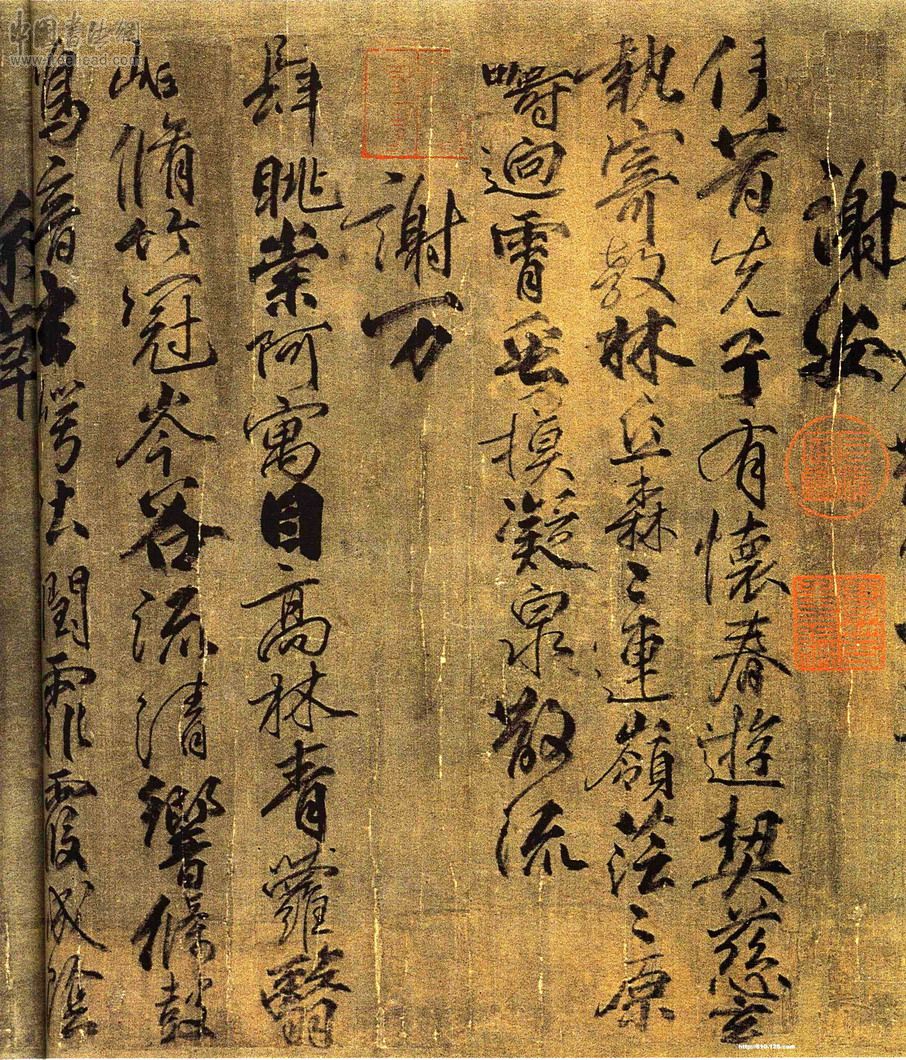 謝安
伊昔先子有懷春遊契茲言
執寄敖林丘森〻連嶺茫〻原
疇迥霄垂霧凝泉散流
謝万
肆眺崇阿寓目高林青蘿翳
岫脩竹冠岑谷流清響條鼓
鳴音玄崿吐潤霏霧成陰
中国书法網
www.freehead.com